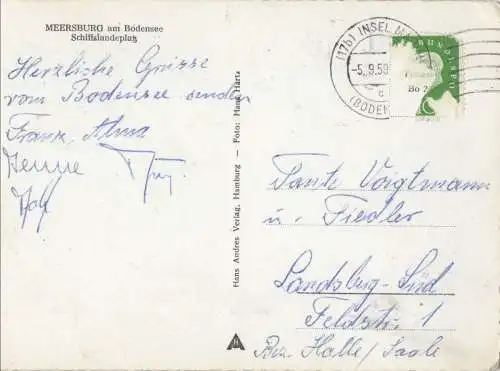 MEERSBURG am Bodensee
Schiffslandeplatz
Herzliche Grüsse
vom Bodensee senden
Franz, Alma
Hans Andres Verlag, Hamburg — Foto: Hans Hartz
(17b) INSEL MA
-5.9.59
c
(BODEN
BUNDESPO
Bo 2
Tante Voigtmann
u. Fiedler
Landsberg-Süd
Feldstr. 1
Bez. Halle/Saale